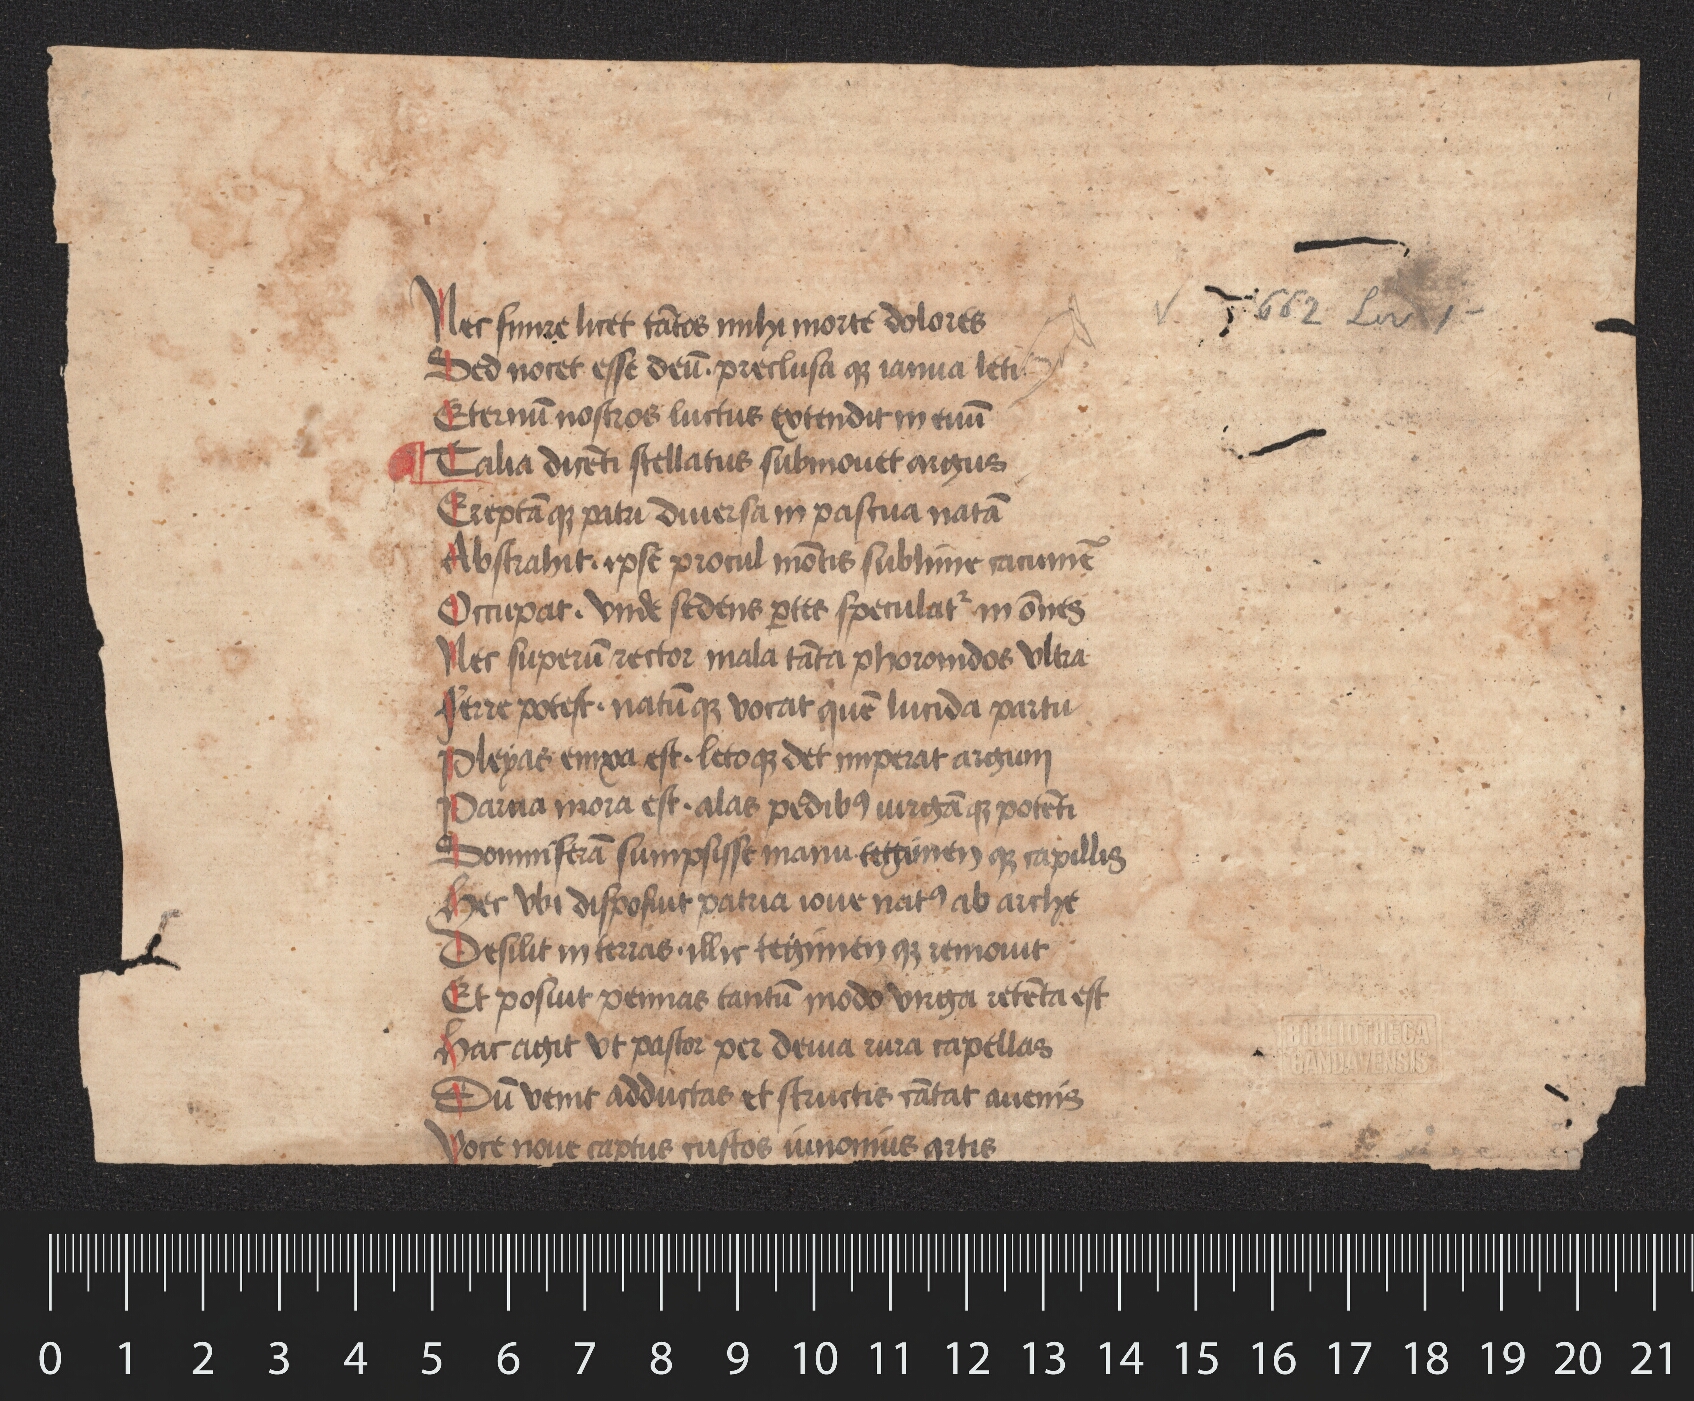 Nec finire licet tātos mihi morte dolores
v. 662 Liv 1-
Sed nocet esse deū · preclusa qꝫ ianua leti
Eternū nostros luctus extendit in euū
¶ Talia dicēti stellatus submouet argus
Ereptāqꝫ patri diuersa in pascua natā
Abstrahit · ipse procul mōtis sublime cacumē
Occupat · vnde sedens ꝑtes speculatᷣ in ōnes
Nec superū rector mala tāta phoronidos vltra
Ferre potest · natūqꝫ vocat quē lucida partu
Pleyas enixa est · letoqꝫ det imperat argum
Parua mora est · alas pedibꝰ uirgāqꝫ potēti
Somniferā sumpsisse manu tegimen qꝫ capillis
Hec vbi disposuit patria ioue natꝰ ab arche
Desilit in terras · illic tegimen qꝫ remouit
Et posuit pennas tantū modo virga retēta est
Hac agit vt pastor per deuia rura capellas
Dū venit adductas et structis cātat auenis
Voce noue captus custos iunonius artis
BIBLIOTHECA
GANDAVENSIS
0 1 2 3 4 5 6 7 8 9 10 11 12 13 14 15 16 17 18 19 20 21